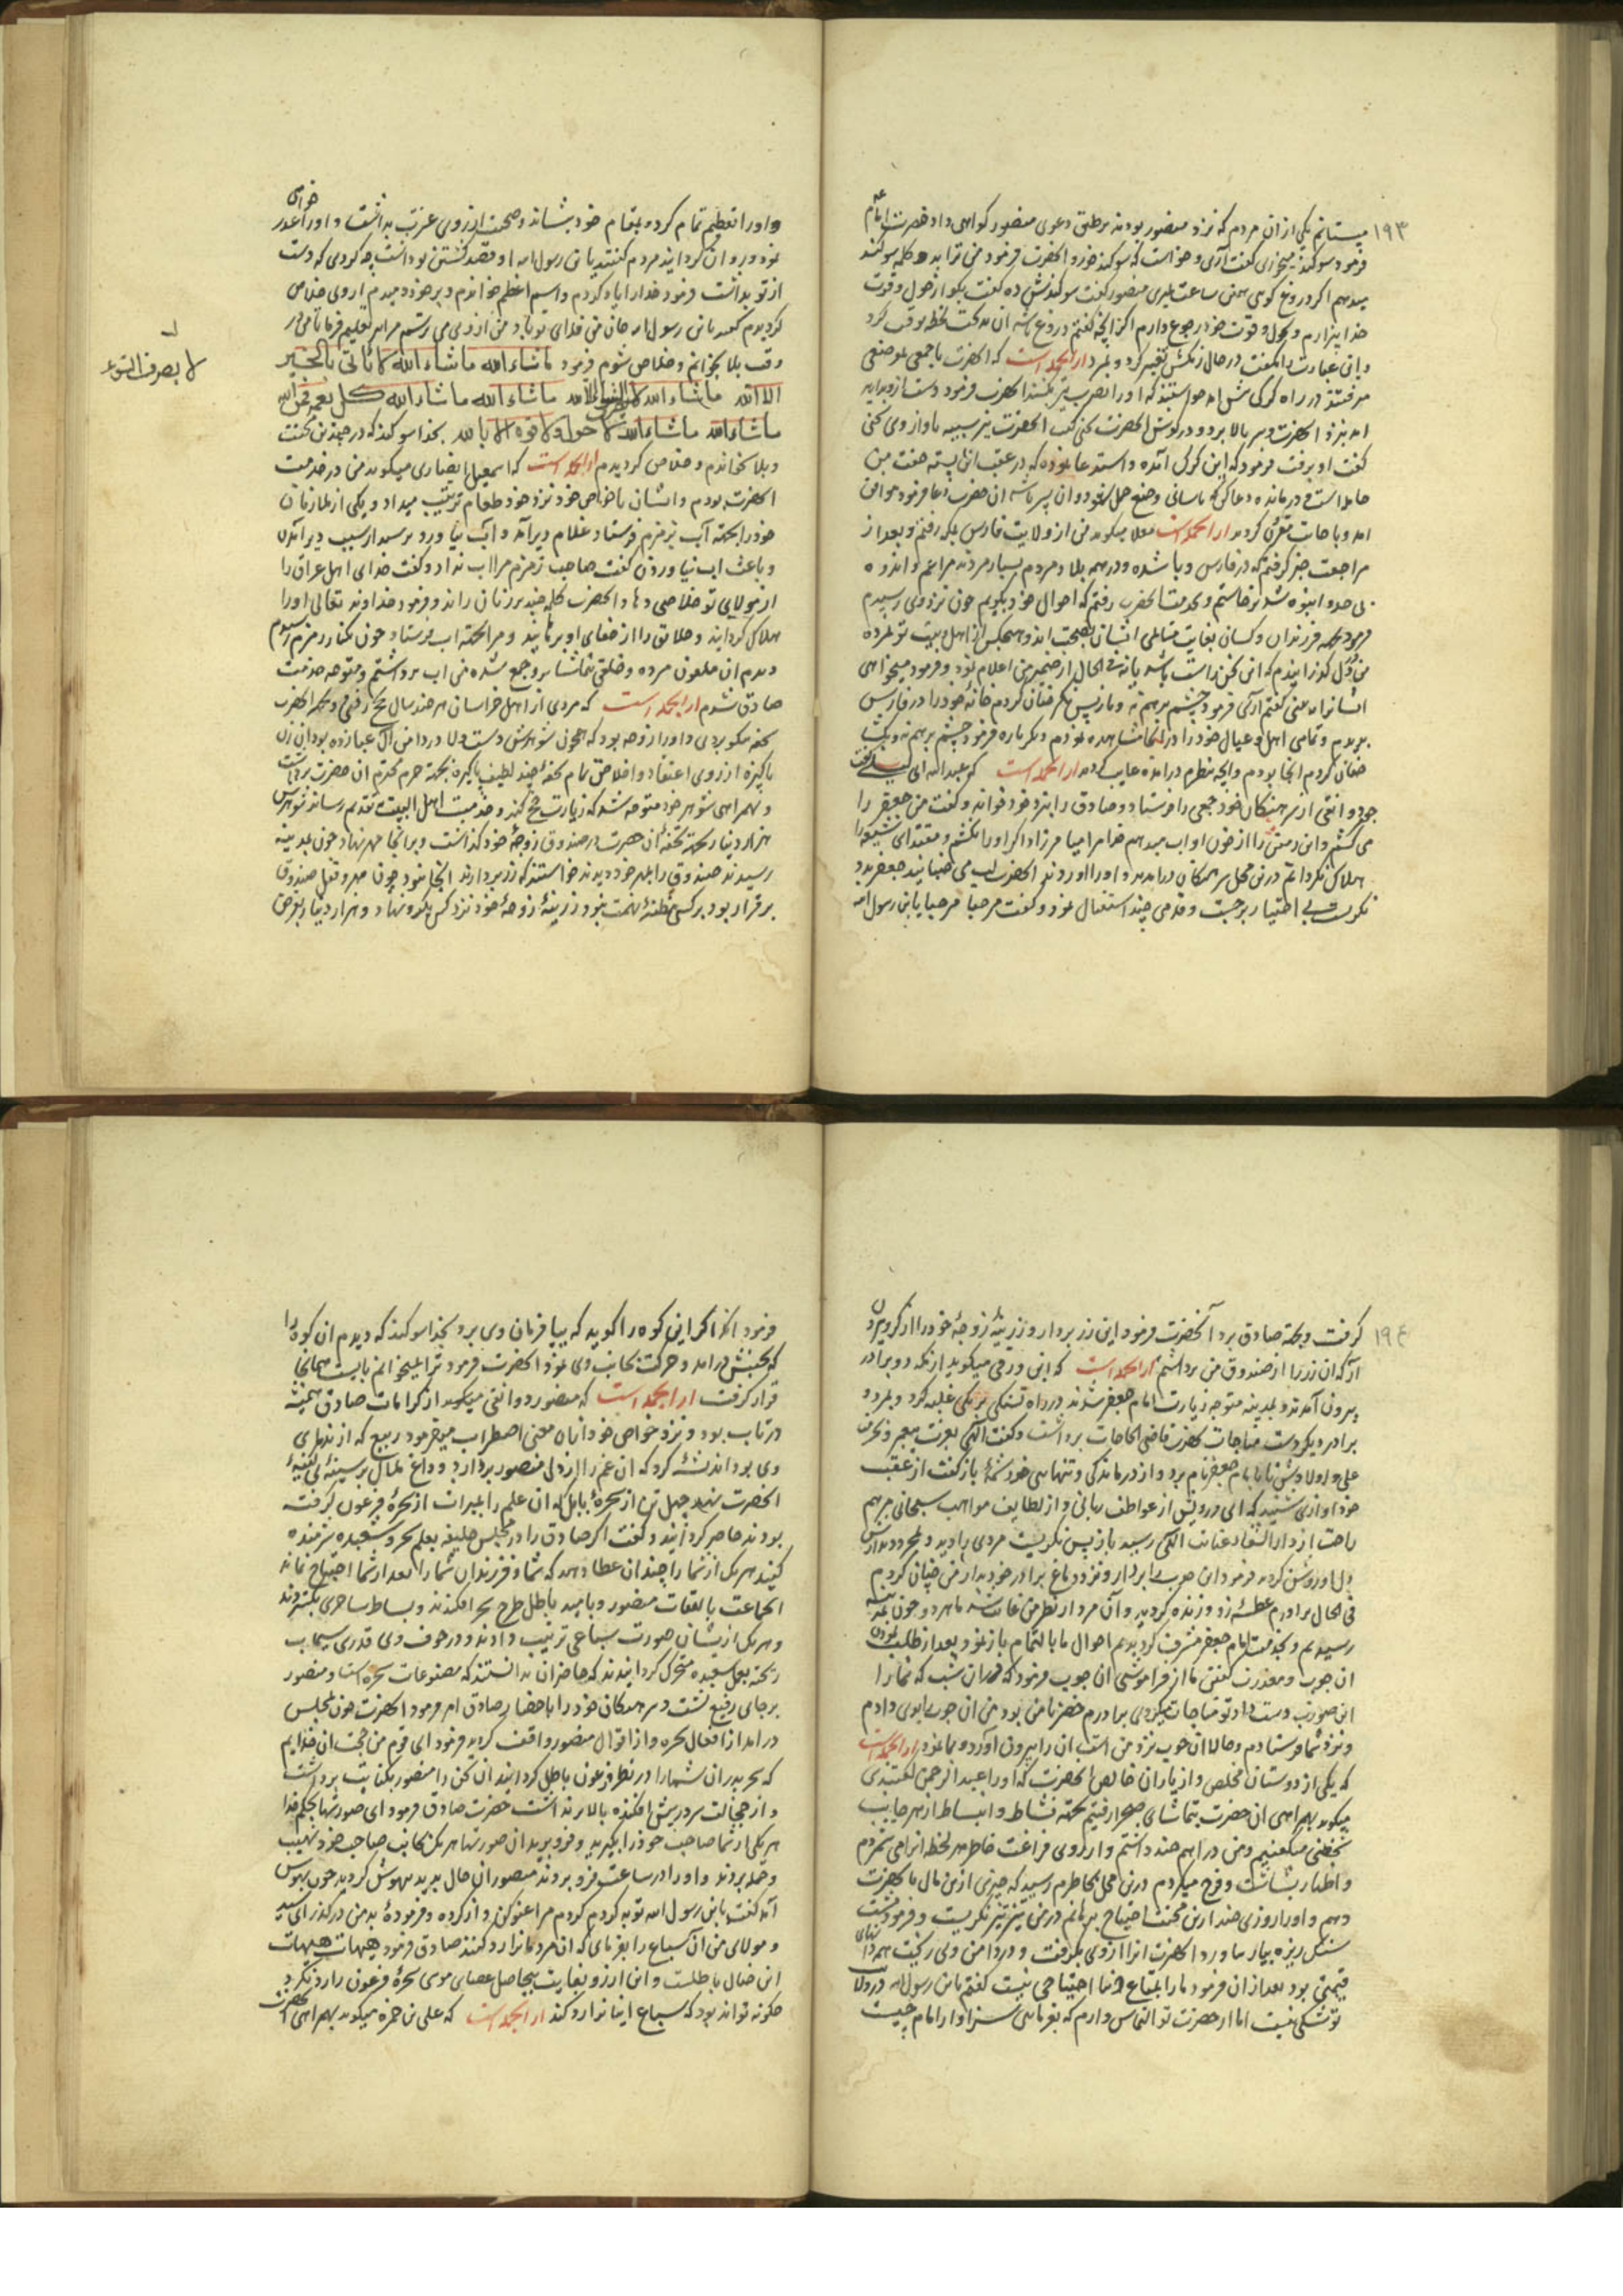 ١٩٣
میستانم یکی از ان مردم که نزد منصور بودند بر طبق دعوی منصور کواهی داد حضرت امام
فرمود سوکند میخوری کفت آری و خواست که سوکند خورد انحضرت فرمود من ترا بدو کلمه سوکند
میدهم اکر دروغ کوئی همین ساعت بمیری منصور کفت سوکندش ده کفت بکو از حول و قوت
خدا بیزارم و بحول و قوت خود رجوع دارم اکر انچه کفتم دروغ باشد ان مرد یک لحظه توقف کرد
و این عبارت را بکفت در حال رنکش تغییر کرد و بمرد از انجمله است که انحضرت با جمعی بموضعی
میرفتند در راه کرکی پیش امد خواستند که او را بضرب تیر بکشند انحضرت فرمود دست ازو بدارید
امد بنزد انحضرت و سر بالا برد و در کوش انحضرت سخنی کفت انحضرت نیز سر پیش آورده باو از وی سخنی
کفت او برفت فرمود که این کرک آمده و استدعا نموده که در عقب این پشته جفت من
حامله است و درمانده دعا کن که باسانی وضع حمل نمود و ان پسر باشد ان حضرت دعا فرمود موافق
امد و باجابت مقرون کردید از انجمله است معلا میکوید من از ولایت فارس بمکه رفتم و بعد از
مراجعت خبر کرفتم که در فارس وبا شده و در همه بلاد مردم بسیار مردند مرا غم و اندوه
بی حد و انبوه شد برخاستم و بخدمت انحضرت رفتم که احوال خود بکویم چون نزد وی رسیدم
فرمود همه فرزندان و کسان بغایت سالم ایشان بصحت اند و هیچکس از اهل بیت تو نمرده
من در دل کذرانیدم که این سخن راست باشد یا نه فی الحال از ضمیر من اعلام نمود و فرمود میخواهی
ایشانرا ببینی کفتم آری فرمود چشم برهم نه و باز پس نکر چنان کردم خانهٔ خود را در فارس
بدیدم و تمامی اهل و عیال خود را در انجا مشاهده نمودم دیکر باره فرمود چشم برهم نه و بکشا
چنان کردم انجا بودم و انچه بنظرم درامده غایب کردید از انجمله است که عبدالله ابی لیلی کفت
چون دوانقی از سرهنکان خود جمعی را فرستاد و صادق را بنزد خود خواند و کفت من جعفر را
می کشم و این زمین را از خون او آب میدهم خدا مرا میامرزاد اکر او را نکشم و مقتدای شیعه را
هلاک نکردانم درین محل سرهنکان درامدند و او را اوردند انحضرت لب می جنبانید جعفر بدو
نکریست بی اختیار برجست و قدمی چند استقبال نمود و کفت مرحبا مرحبا یابن رسول الله
و او را تعظیم تمام کرده بمقام خود بنشاند و صحبت از روی عزت بداشت و او را عذر خواهی
نمود و روان کردانید مردم کفتند یابن رسول الله او قصد کشتن تو داشت چه کردی که دست
از تو بداشت فرمود خدا را یاد کردم و اسم اعظم خواندم و بر خود دمیدم از وی خلاص
کردیدم کفتند یابن رسول الله جان من فدای تو باد من از وی می ترسم مرا نیز تعلیم فرما تا من در
وقت بلا بخوانم و خلاص شوم فرمود ماشاء الله ماشاء الله لا یأتی بالخیر
الا الله ماشاء الله لا یصرف السوء الا الله ماشاء الله ماشاء الله کل نعمة فمن الله
ماشاء الله ماشاء الله لا حول ولا قوة الا بالله بخدا سوکند که در چندین محنت
و بلا خواندم و خلاص کردیدم از انجمله است که اسمعیل انصاری میکوید من در خدمت
انحضرت بودم و ایشان با خواص خود نزد خود طعام ترتیب میداد و یکی از ملازمان
خود را بجهة آب بزمزم فرستاد غلام دیر آمد و آب نیاورد پرسید از سبب دیر آمدن
و باعث اب نیاوردن کفت صاحب زمزم مرا اب نداد و کفت خدای اهل عراق را
از مولای تو خلاصی دهاد انحضرت کلمهٔ چند بر زبان راند و فرمود خداوند تعالی او را
هلاک کردانید و خلایق را از جفای او برهانید و مرا بجهة اب فرستاد چون بکنار زمزم رسیدم
دیدم ان ملعون مرده و خلقی بتماشا برو جمع شده من اب برداشتم و متوجه خدمت
صادق شدم از انجمله است که مردی از اهل خراسان هر چند سال بحج رفتی و بجهة انحضرت
تحفه نیکو بردی و او را زوجه بود که همچون شوهرش دست ولا در دامن آل عبا زده بود ان زن
پاکیزه از روی اعتقاد و اخلاص تمام تحفهٔ چند لطیف پاکیزه بجهة حرم محترم ان حضرت برداشت
و بهمراهی شوهر خود متوجه شد که زیارت حج کند و خدمت اهل البیت بتقدیم رساند شوهرش
هزار دینار بجهة تحفهٔ ان حضرت در صندوق زوجهٔ خود کذاشت و بر انجا مهر نهاد چون بمدینه
رسیدند صندوق را بمهر خود دیدند خواستند که زر بردارند انجا نبود چون مهر و قفل صندوق
برقرار بود بر کسی مظنهٔ تهمت نبود زرینهٔ زوجهٔ خود نزد کسی بکرو نهاد و هزار دینار بقرض
لا یصرف السوء
١٩٤
کرفت و بجهة صادق برد آنحضرت فرمود این زر بردار و زرینهٔ زوجهٔ خود را از کرو بیرون
آر که ان زر را از صندوق من برداشتم از انجمله است که ابن ورقی میکوید از مکه دو برادر
بیرون آمدند و بمدینه متوجه زیارت امام جعفر شدند در راه تشنکی بر یکی غلبه کرد و بمرد و
برادر دیکر دست مناجات بحضرت قاضی الحاجات برداشت و کفت الهی بعزت پیغمبر و بحرمت
علی و اولادش تا بامام جعفر نام برد و از درماندکی و تنهایی خود شمهٔ باز کفت از عقب
خود اوازی شنید که ای درویش از عواطف ربانی و از لطایف مواهب سبحانی مرهم
راحت از دار الشفاء عنایت الهی رسید باز پس نکریست مردی را دید و بمجرد دیدارش
دل او روشن کردید فرمود این چوب بردار و نزد دماغ برادر خود بدار من چنان کردم
فی الحال برادرم عطسهٔ زد و زنده کردید و آن مرد از نظر من غایب شد ما هر دو چون بمدینه
رسیدیم و بخدمت امام جعفر مشرف کردیدیم احوال ما بالتمام باز نمود و بعد از طلب نمودن
ان چوب و معذرت کفتن ما از فراموشی ان چوب فرمود که دران شب که شما را
این صورت دست داد تو مناجات میکردی برادرم خضر با من بود من ان چوب بوی دادم
و نزد شما فرستادم و حالا ان چوب نزد من است ان را بیرون آورد و بما نمود از انجمله است
که یکی از دوستان مخلص و از یاران خالص انحضرت که او را عبدالرحمن کفتندی
میکوید بهمراهی ان حضرت بتماشای صحرا رفتیم بجهة نشاط و انبساط از هر جانب
سخنی میکفتیم و من دراهم چند داشتم و از روی فراغت خاطر هر لحظه انرا می شمردم
و اظهار بشاشت و فرح میکردم درین محل بخاطرم رسید که چیزی ازین مال بانحضرت
دهم و او را روزی چند ازین محنت احتیاج برهانم در من تیز تیز نکریست و فرمود مشت
سنک ریزه بیار بیاوردم انحضرت انرا از وی بکرفت و در دامن وی ریخت همه درهای
قیمتی بود بعد از ان فرمود ما را بمتاع دنیا احتیاجی نیست کفتم یابن رسول الله در ولای
تو شکی نیست اما از حضرت تو التماس دارم که بفرمایی سزاوار امام چیست
فرمود انکه اکر این کوه را کوید که بیا فرمان وی برد بخدا سوکند که دیدم ان کوه را
که بجنبش درامد و حرکت بجانب وی نمود انحضرت فرمود ترا نمیخوانم بایست همانجا
قرار کرفت از انجمله است که منصور دوانقی میکوید از کرامات صادق همیشه
در تاب بود و نزد خواص خود ازین معنی اضطراب میفرمود ربیع که از ندمای
وی بود اندیشهٔ کرد که ان غم را از دل منصور بردارد و داغ ملال بر سینهٔ بی کینهٔ
انحضرت نهد چهل تن از سحرهٔ بابل که ان علم را بمیراث از سحرهٔ فرعون کرفته
بودند حاضر کردانید و کفت اکر صادق را در مجلس خلیفه بعلم سحر و شعبده شرمنده
کنید هر یک از شما را چندان عطا دهد که شما و فرزندان شما را بعد از شما احتیاج نماند
انجماعت بالتفات منصور و بامید باطل طرح سحر افکندند و بساط ساحری بکستردند
و هر یک از یشان صورت سباعی ترتیب دادند و در جوف وی قدری سیماب
ریخته بعمل شعبده متحرک کردانیدند که حاضران بدانستند که مصنوعات سحره است و منصور
بر جای رفیع نشست و سرهنکان خود را باحضار صادق امر فرمود انحضرت چون بمجلس
درامد از افعال سحره و از اقوال منصور واقف کردید فرمود ای قوم من حجت ان خدایم
که سحر پدران شما را در نظر فرعون باطل کردانید ان سخن را منصور بکنایت برداشت
و از خجالت سر در پیش افکنده بالا برنداشت حضرت صادق فرمود ای صورتها بحکم خدا
هر یکی از شما صاحب خود را بکیرید و فرو برید ان صورتها هر یک بجانب صاحب خود نهیب
و حمله بردند و او را در ساعت فرو بردند منصور ان حال بدید بیهوش کردید چون بهوش
آمد کفت یابن رسول الله توبه کردم کردم مرا عفو کن و از کرده و فرمودهٔ بد من در کذر ای سید
و مولای من ان سباع را بفرمای که ان مردمانرا رد کنند صادق فرمود هیهات هیهات
این خیال باطلست و این ارزو بغایت بیحاصل عصای موسی سحرهٔ فرعون را رد نکرد
چکونه تواند بود که سباع اینانرا رد کند از انجمله است که علی بن حمزه میکوید بهمراهی انحضرت